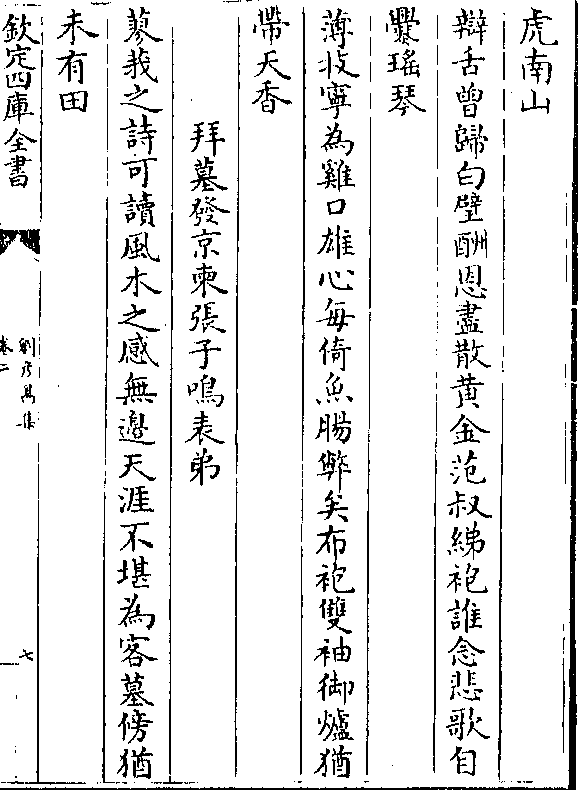 虎南山
辯舌曾歸白璧酬恩盡散黄金范叔綈袍誰念悲歌自
爨瑤琴
薄技寧為雞口雄心每倚魚腸弊矣布袍雙袖御爐猶
帶天香
拜墓發京柬張子鳴表弟
蓼莪之詩可讀風木之感無邊天涯不堪為客墓傍猶
未有田
欽定四庫全書
劉彦昺集
卷二
七